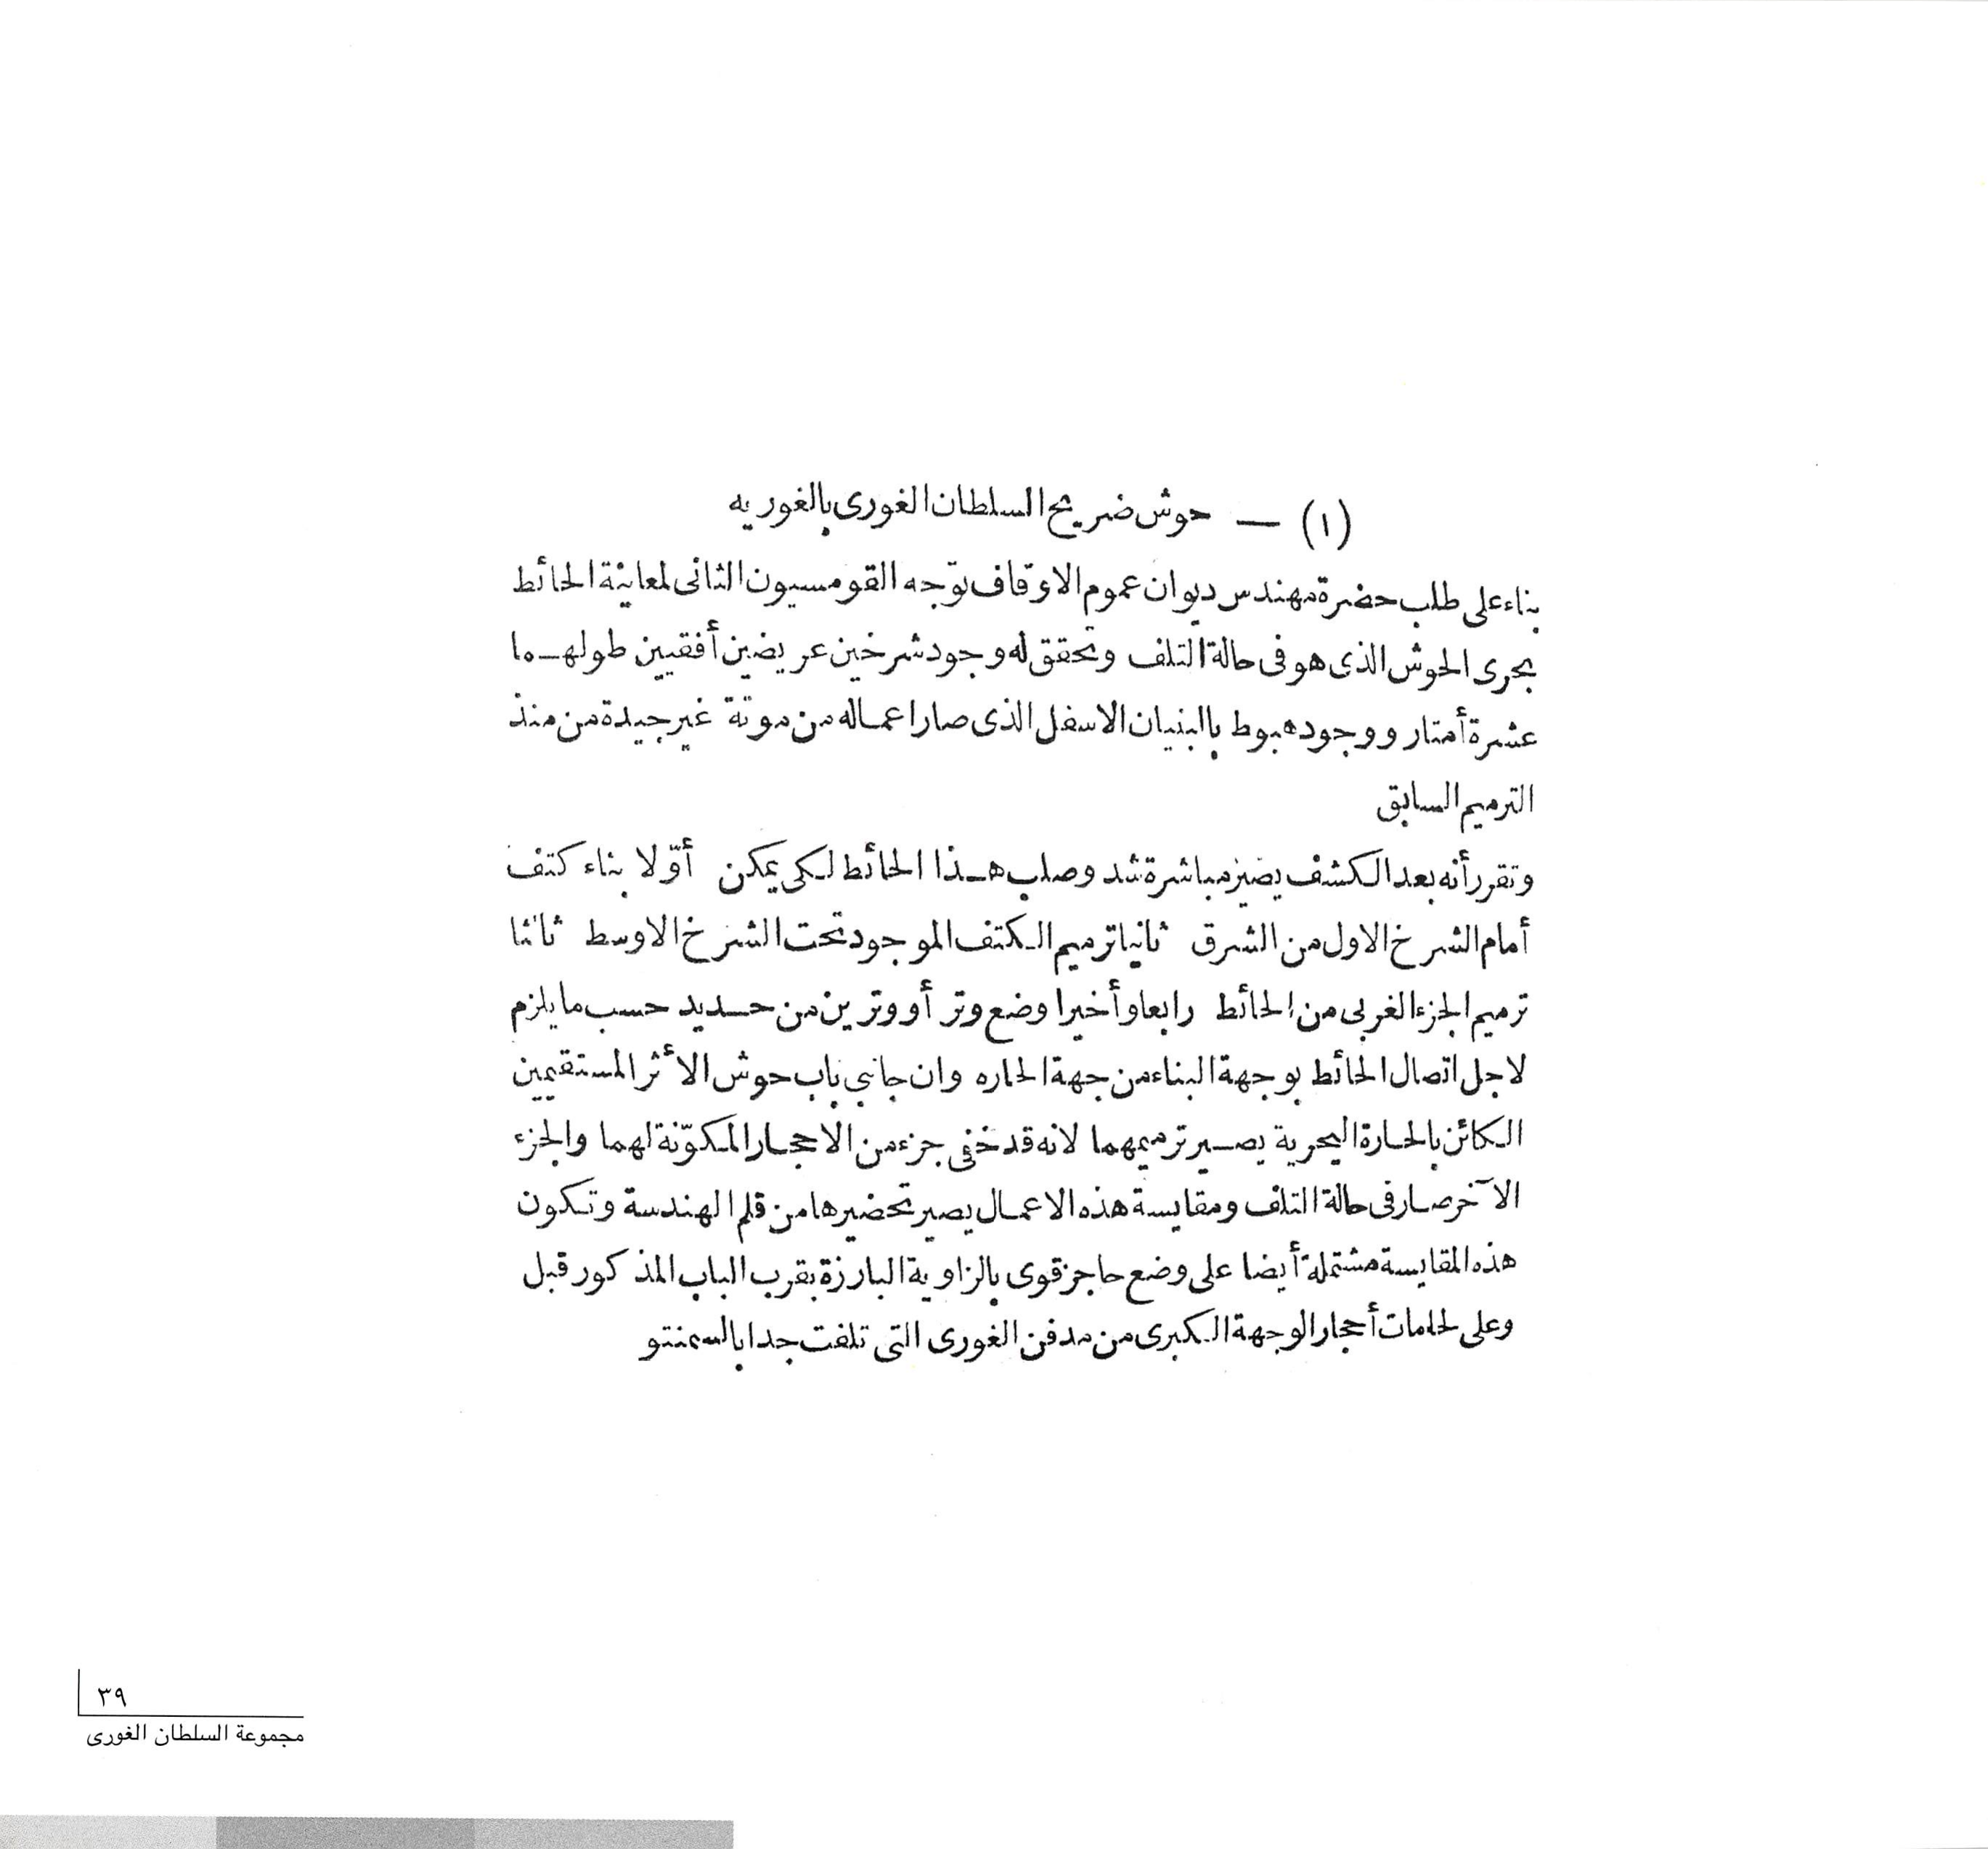 (١) — حوش ضريح السلطان الغورى بالغوريه
بناء على طلب حضرة مهندس ديوان عموم الاوقاف توّجه القومسيون الثانى لمعاينة الحائط
بحرى الحوش الذى هو فى حالة التلف وتحقق له وجود شرخين عريضين أفقيين طولهـما
عشرة أمتار ووجود هبوط بالبنيان الاسفل الذى صار اعماله من مونة غير جيدة من منذ
الترميم السابق
وتقرر أنه بعد الكشف يصير مباشرة شد وصلب هـذا الحائط لكى يمكن أوّلا بناء كتف
أمام الشرخ الاول من الشرق ثانيا ترميم الكتف الموجود تحت الشرخ الاوسط ثالثا
ترميم الجزء الغربى من الحائط رابعا وأخيرا وضع وتر أو وترين من حـديد حسب ما يلزم
لاجل اتصال الحائط بوجهة البناء من جهة الحاره وان جانبى باب حوش الأثر المستقيمين
الكائن بالحارة البحرية يصـير ترميمهما لانه قد خفى جزء من الاحجار المكوّنة لهما والجزء
الآخر صار فى حالة التلف ومقايسة هذه الاعمال يصير تحضيرها من قلم الهندسة وتكون
هذه المقايسة مشتملة أيضا على وضع حاجز قوى بالزاوية البارزة بقرب الباب المذكور قبل
وعلى لحامات أحجار الوجهة الكبرى من مدفن الغورى التى تلفت جدا بالسمنتو
٣٩
مجموعة السلطان الغورى